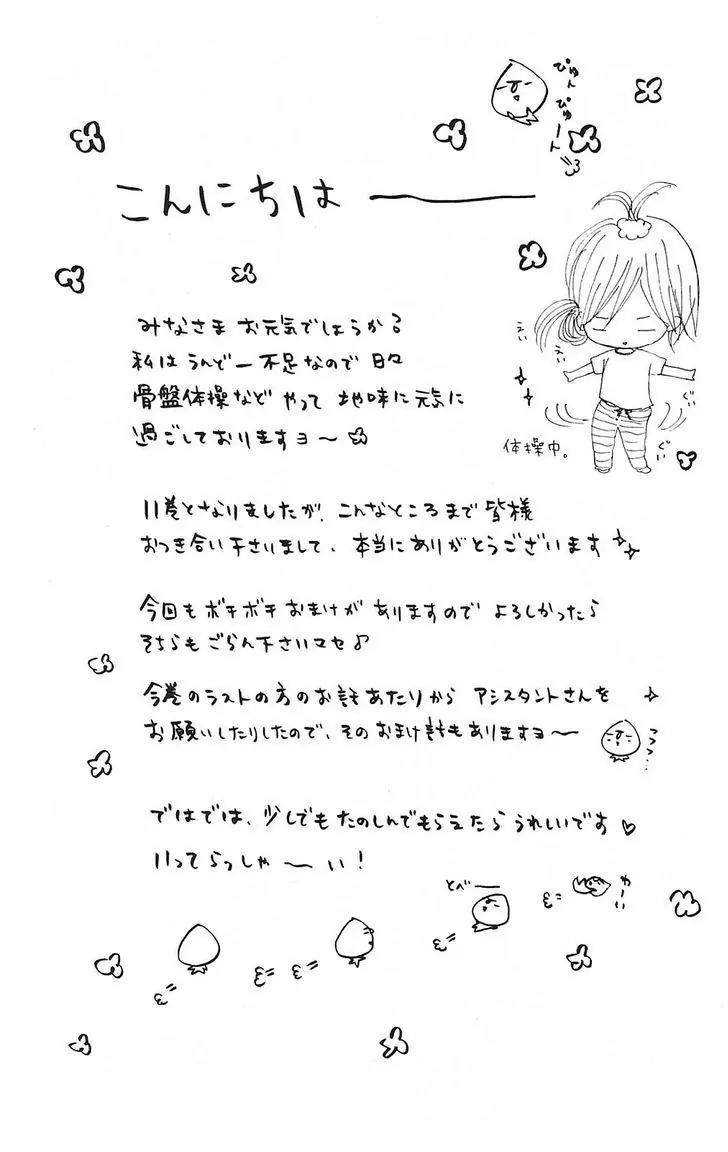 ぴゅん
ぴゅーん
こんにちは――
みなさま お元気でしょうか?
私は うんどー不足なので 日々
骨盤体操など やって 地味に元気に
過ごしておりますヨ〜
えい
えい
ぐい
ぐい
体操中。
11巻となりましたが、こんなところまで皆様
おつき合い下さいまして、本当にありがとうございます
今回もボチボチおまけがありますので よろしかったら
そちらもごらん下さいマセ♪
今巻のラストの方のお話あたりから アシスタントさんを
お願いしたりしたので、そのおまけ話もありますヨ〜
フフフ…
ではでは、少しでもたのしんでもらえたらうれしいです♡
いってらっしゃ〜い!
とべー
わーい